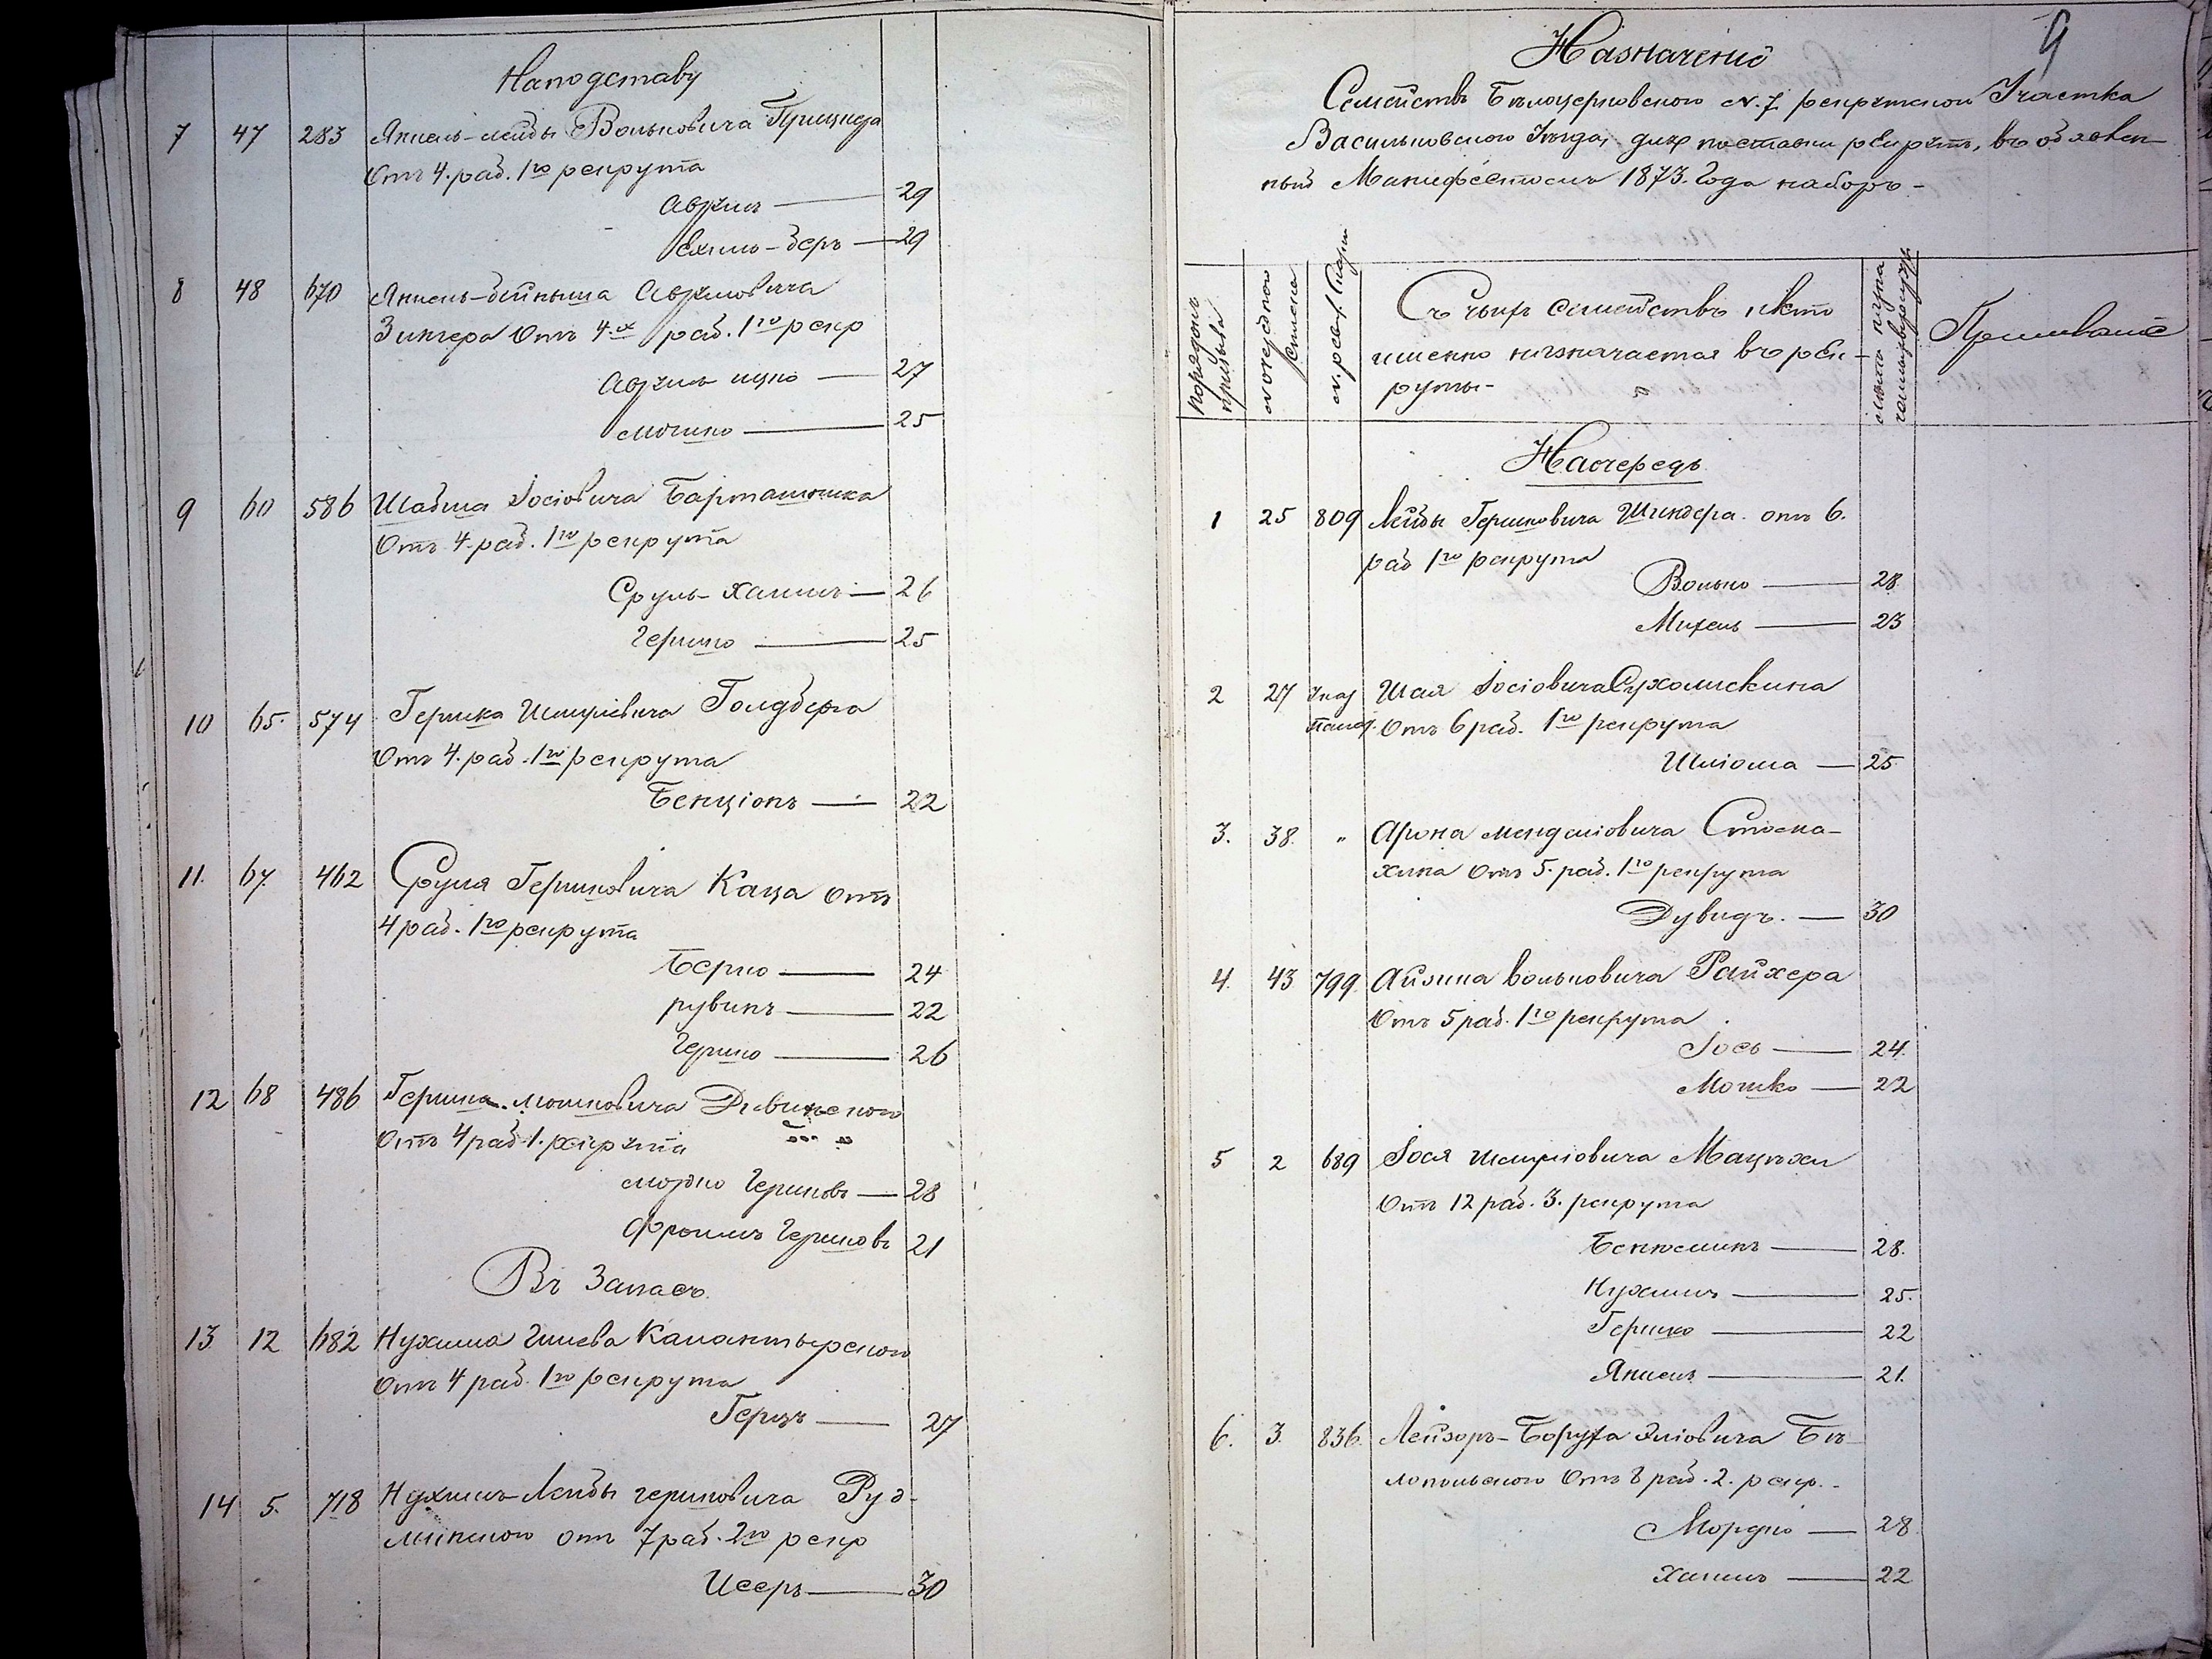 Наподставу
7 47 283 Янкель-лейбы Вольковича Прицкера
Отъ 4. раб. 1го рекрута
Аврумъ — 29
Ехиль-беръ — 29
8 48 670 Янкель-бейныша Аврумовича
Зингера Отъ 4.х раб. 1го рекр
Аврумъ ицко — 27
мошко — 25
9 60 586 Шабша Іосіовича Барташника
Отъ 4. раб. 1го рекрута
Сруль-Хаимъ — 26
Гершко — 25
10 65. 574 Гершка Шмулевича Голдберга
Отъ 4. раб. 1го рекрута
Бенціонъ — 22
11. 67. 462 Сруля Гершковича Каца отъ
4 раб. 1го рекрута
Берко — 24
рувинъ — 22
Гершко — 26
12 68 486 Гершка мошковича Дивинского
Отъ 4 раб 1. рекрута
мордко Гершковъ — 28
Фроимъ Гершковъ 21
Въ Запасъ
13 12 682 Нухима Калантырского
Отъ 4 раб. 1го рекрута
Герцъ — 27
14 5. 718 Нухимъ-Лейбы гершковича Руд-
минского отъ 7 раб. 2го рекр
Исеръ — 30
9
Назначеніе
Семействъ Бѣлоцерковского №. 7 рекрутского Участка
Васильковского Уѣзда, для поставки рекрутъ, въ объявлен-
ный Манифестомъ 1873. Года наборъ-
порядокъ призыва
№ очередного списка
№. рев. сказки
Съ чьихъ семействъ, и кто
именно назначается въ рек-
руты-
Примѣчаніе
Наочередь
1 25 809 Лейбы Гершковича Шикдера. отъ 6.
раб 1го рекрута
Волько — 28
Михель — 23
2 27 Шая Іосіовича Сухомискина
Отъ 6 раб. 1го рекрута
Шлiома — 25
3. 38. " Арона мендиліовича Стома-
хина Отъ 5. раб. 1го рекрута
Дувидъ. — 30
4. 43 799. Айзика вольковича Райхера
Отъ 5 раб. 1го рекрута
Іось — 24.
Мошко — 22
5 2 689 Іося шмуліовича Мацюхи
Отъ 12 раб. 3. рекрута
Беніоминъ — 28.
Нухимъ — 25.
Гершко — 22
Янкель — 21.
6. 3. 836. Лейзоръ-Боруха Эліовича Бѣ-
лопольского Отъ 8 раб. 2. рекр.-
Мордко — 28
Хаимъ — 22